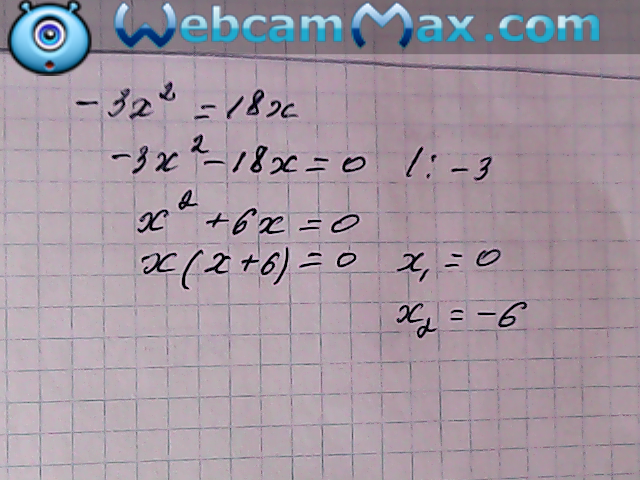 WebcamMax.com
-3x² = 18x
-3x² - 18x = 0 /: -3
x² + 6x = 0
x(x+6) = 0 x₁ = 0
x₂ = -6